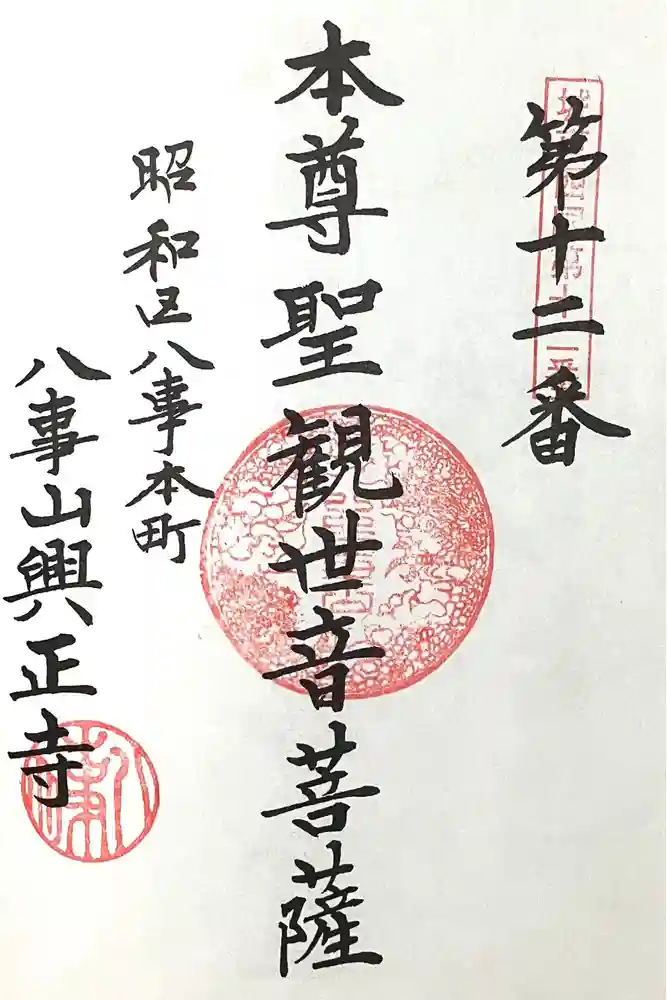 第十二番
本尊聖観世音菩薩
昭和区八事本町
八事山興正寺